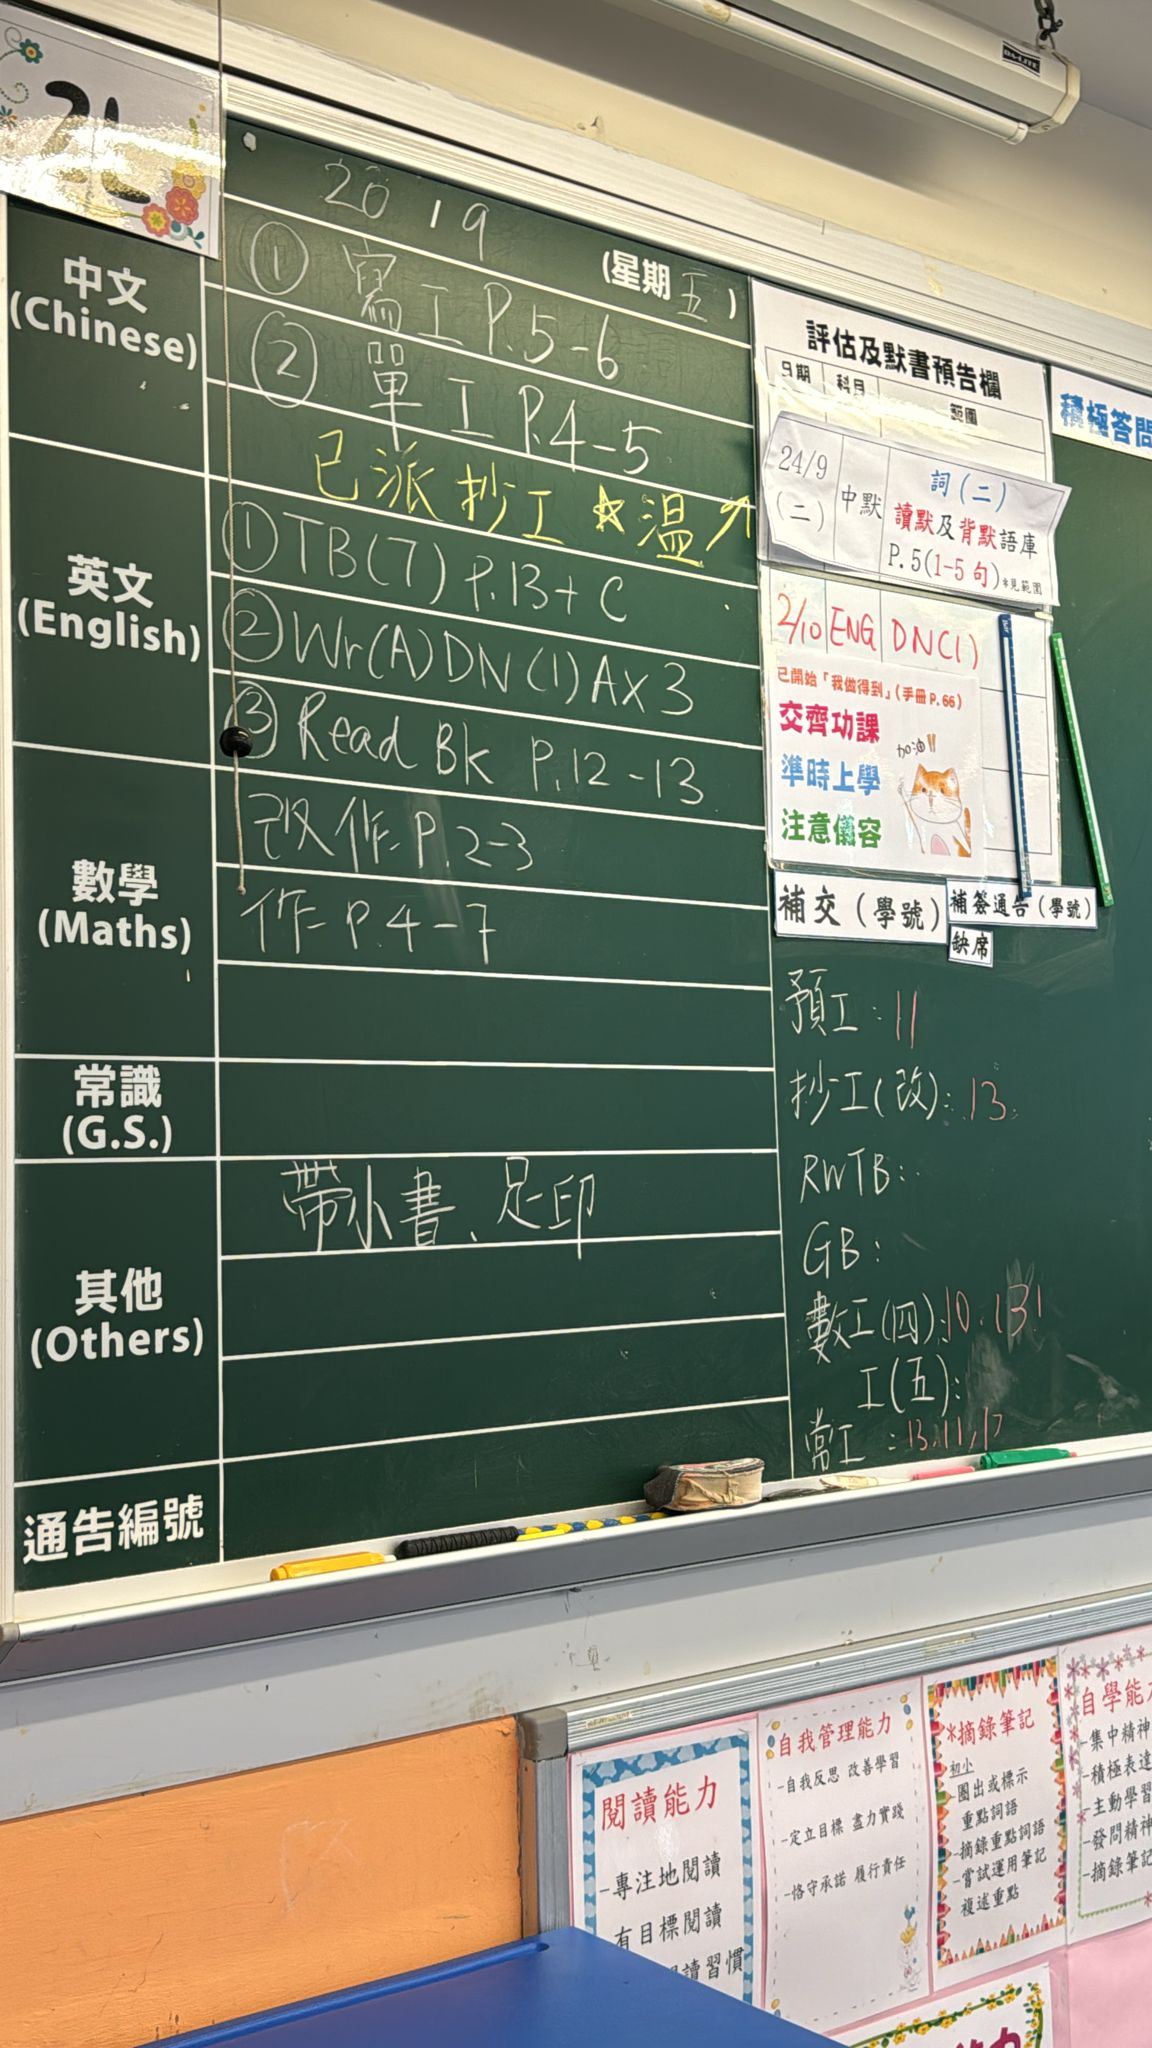 2L
中文
(Chinese)
20 19
(星期 五)
① 寫工 P.5-6
② 單工 P.4-5
已派抄工 ☆溫↗
英文
(English)
① TB(7) P.13+C
② Wr(A) DN(1) A×3
③ Read BK P.12-13
數學
(Maths)
改作 P.2-3
作 P.4-7
常識
(G.S.)
其他
(Others)
帶小書、足印
通告編號
評估及默書預告欄
日期 科目 範圍
24/9
(二)
中默
詞(二)
讀默及背默語庫
P.5(1-5句)*見範圍
2/10 ENG DN(1)
已開始「我做得到」(手冊P.66)
交齊功課
準時上學
注意儀容
加油!!
補交(學號)
補簽通告(學號)
缺席
預工: 11
抄工(改): 13
RWTB:
GB:
數工(四): 10. 13
工(五):
常工: 13, 11,
積極答問
DA-LITE
閱讀能力
-專注地閱讀
有目標閱讀
讀習慣
自我管理能力
-自我反思 改善學習
-定立目標 盡力實踐
-恪守承諾 履行責任
*摘錄筆記
初小
-圈出或標示
重點詞語
-摘錄重點詞語
-嘗試運用筆記
複述重點
自學能力
-集中精神
-積極表達
-主動學習
-發問精神
-摘錄筆記